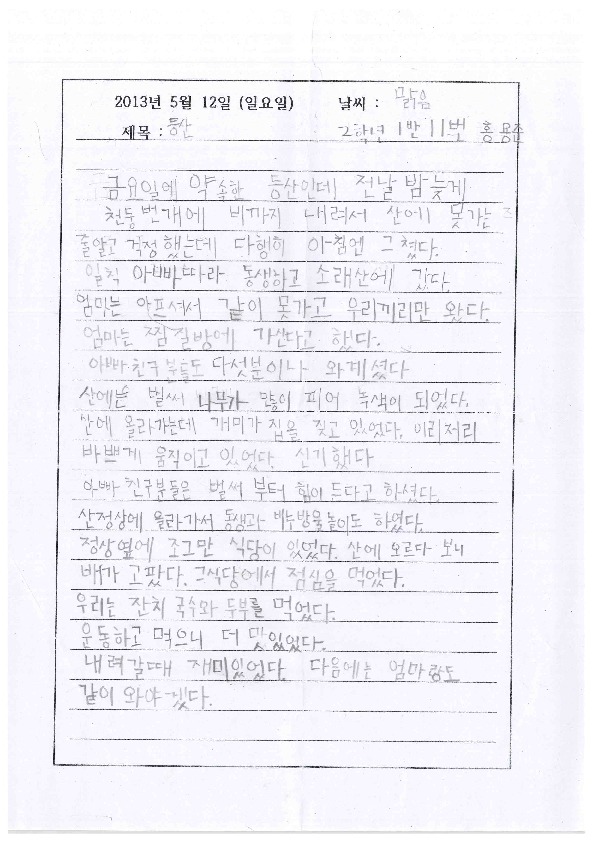 2013년 5월 12일 (일요일) 날씨 : 맑음
제목 : 등산 2학년 1반 11번 홍용준
금요일에 약속한 등산인데 전날 밤 늦게
천둥번개에 비까지 내려서 산에 못가는
줄알고 걱정했는데 다행히 아침엔 그쳤다.
일찍 아빠따라 동생하고 소래산에 갔다.
엄마는 아프셔서 같이 못가고 우리끼리만 왔다.
엄마는 찜질방에 가신다고 했다.
아빠 친구 분들도 다섯분이나 와계셨다
산에는 벌써 나무가 많이 피어 녹색이 되었다.
산에 올라가는데 개미가 집을 짓고 있었다. 이리저리
바쁘게 움직이고 있었다. 신기했다
아빠 친구분들은 벌써 부터 힘이 든다고 하셨다.
산정상에 올라가서 동생과 비누방울놀이도 하였다.
정상옆에 조그만 식당이 있었다. 산에 오르다 보니
배가 고팠다. 그식당에서 점심을 먹었다.
우리는 잔치 국수와 두부를 먹었다.
운동하고 먹으니 더 맛있었다.
내려갈때 재미있었다. 다음에는 엄마랑도
같이 와야 겠다.